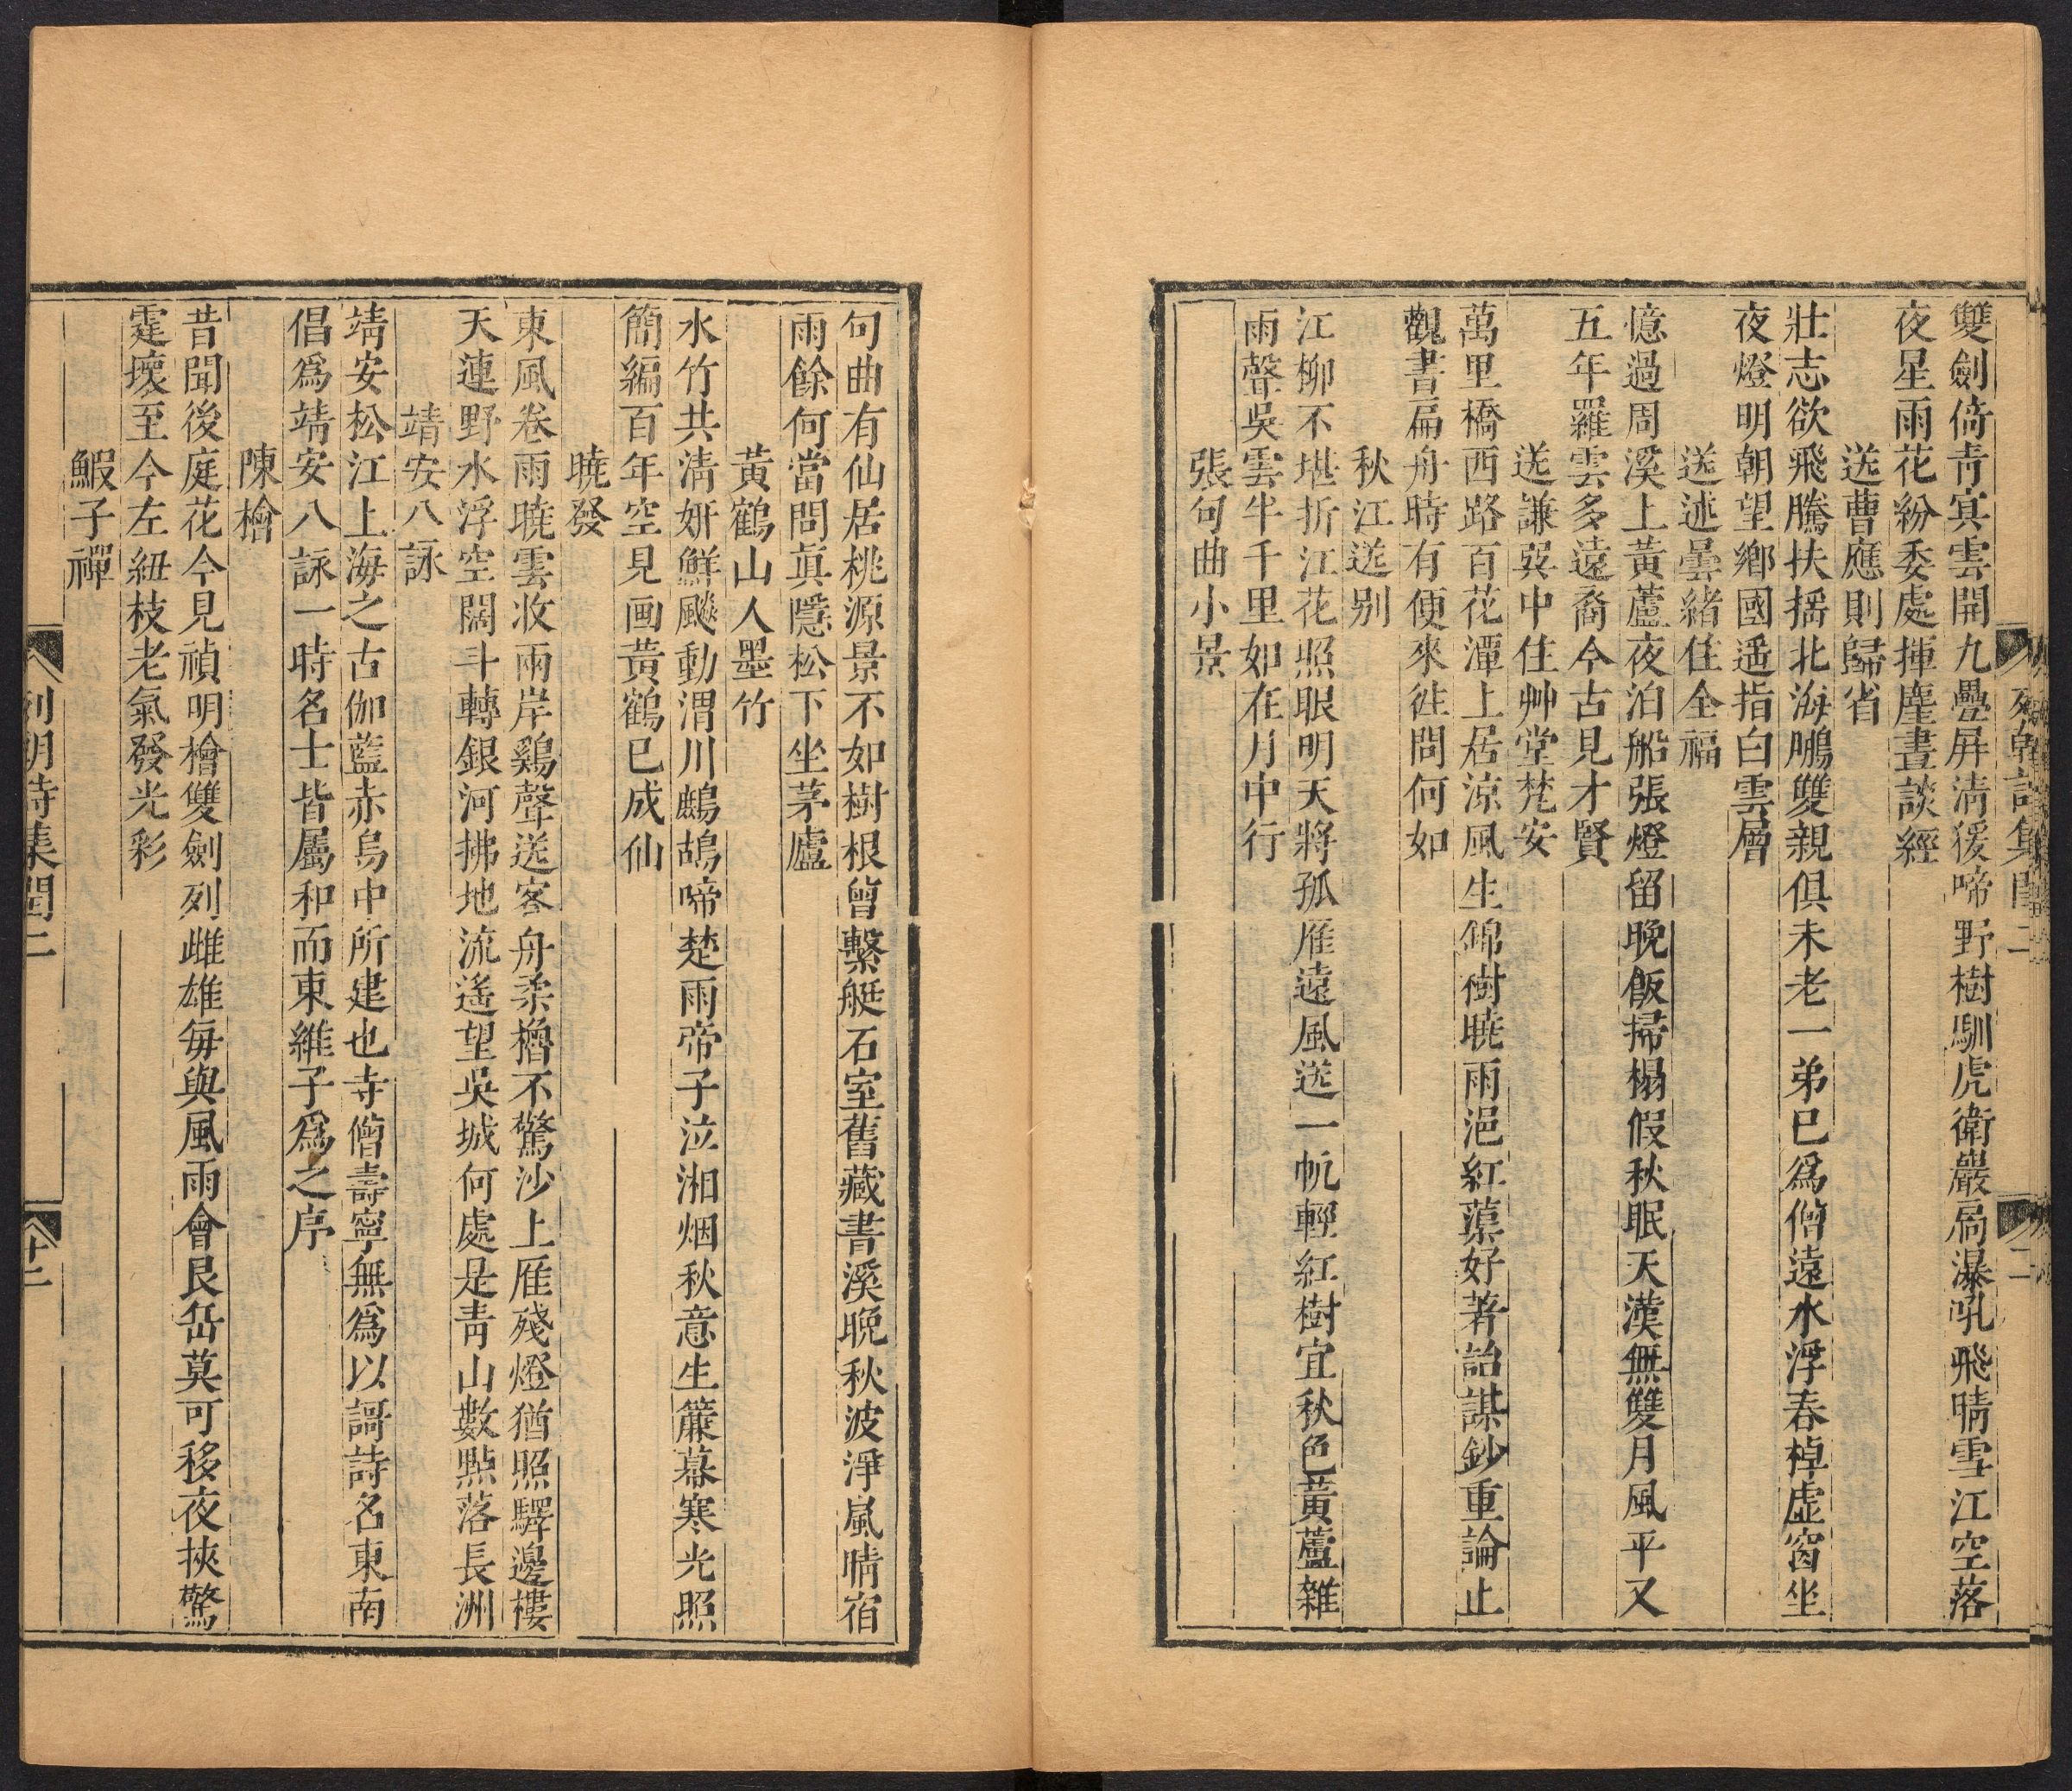 雙劍倚靑㝠雲開九疊屏淸猨啼野樹馴虎衛巖扃瀑吼飛晴雪江空落
夜星雨花紛委處揮麈晝談經
送曹應則歸省
壯志欲飛騰扶搖北海鵬雙親俱未老一弟已爲僧遠水浮春棹虛窗坐
夜燈明朝望鄉國遥指白雲層
送述曇緒住全福
憶過周溪上黃蘆夜泊船張燈留晚飯掃榻假秋眠天漢無雙月風平又
五年羅雲多遠裔今古見才賢
送謙巽中住艸堂梵安
萬里橋西路百花潭上居涼風生錦樹曉雨浥紅蕖好著詒謀鈔重論止
觀書扁舟時有便來徃問何如
秋江送别
江柳不堪折江花照眼明天將孤雁遠風送一帆輕紅樹宜秋色黃蘆雜
雨聲吳雲半千里如在月中行
張句曲小景
句曲有仙居桃源景不如樹根曾繫艇石室舊藏書溪晚秋波淨嵐晴宿
雨餘何當問眞隱松下坐茅廬
黃鶴山人墨竹
水竹共淸妍鮮飈動渭川鷓鴣啼楚雨帝子泣湘烟秋意生簾幕寒光照
簡編百年空見画黃鶴已成仙
曉發
東風卷雨曉雲收兩岸鷄聲送客舟柔櫓不驚沙上雁殘燈猶照驛邊樓
天連野水浮空闊斗轉銀河拂地流遙望吳城何處是靑山數㸃落長洲
靖安八詠
靖安松江上海之古伽藍赤烏中所建也寺僧壽寧無爲以謌詩名東南
倡爲靖安八詠一時名士皆屬和而東維子爲之序
陳檜
昔聞後庭花今見禎明檜雙劍列雌雄每與風雨會艮岳莫可移夜挾驚
霆壞至今左紐枝老氣發光彩
鰕子禪
列朝詩集閏二
十二